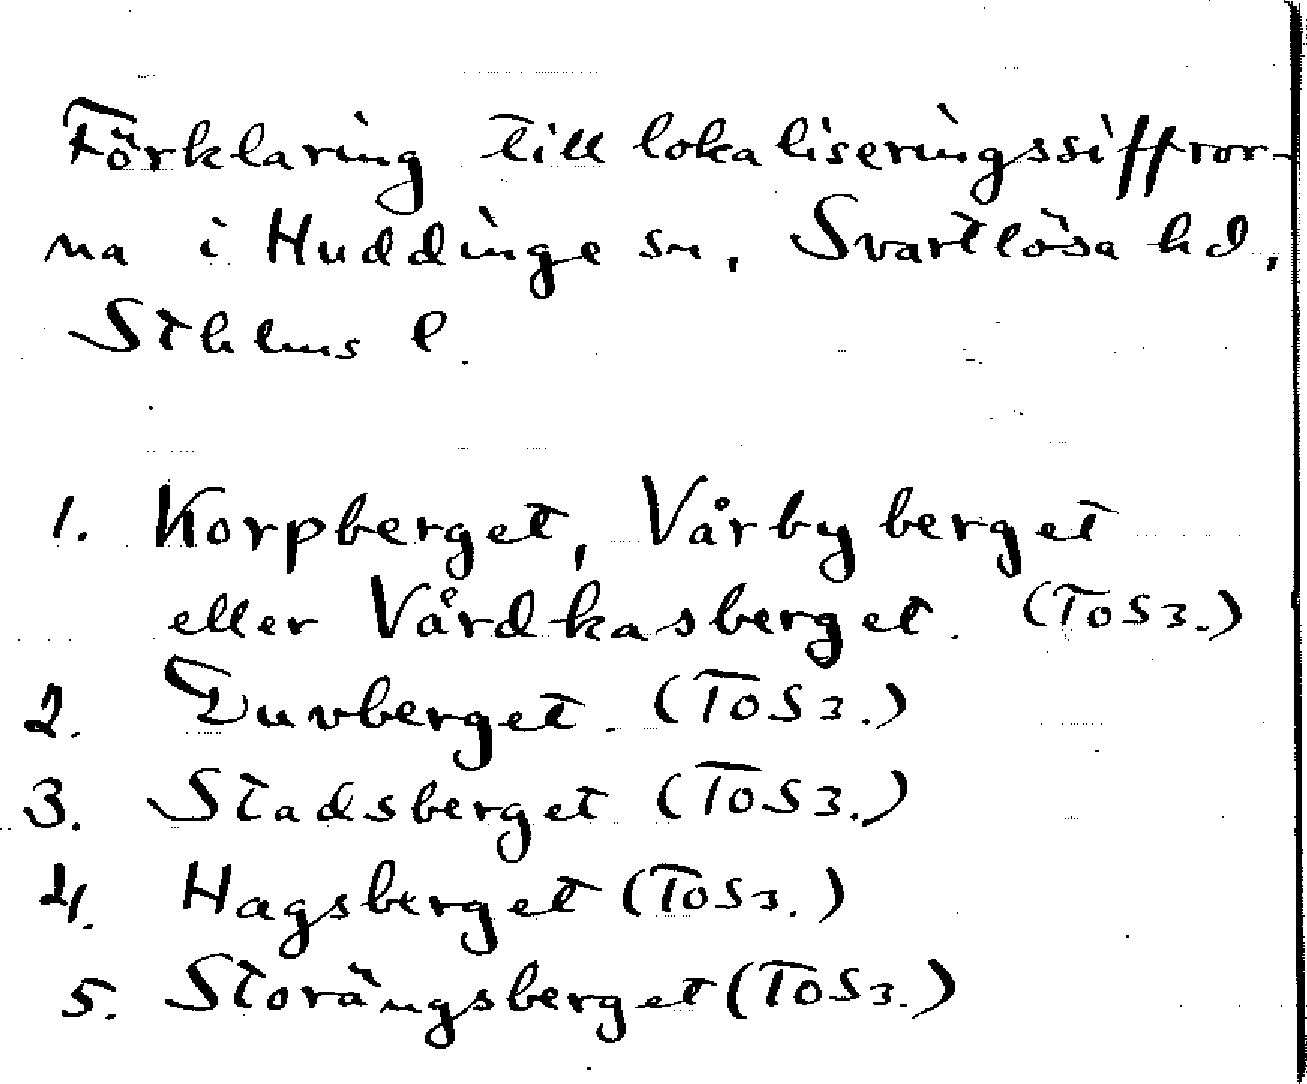 Förklaring till lokaliseringssiffror-
na i Huddinge sn, Svartlösa hd,
Sthlms l.
1. Korpberget, Vårbyberget
eller Vårdkasberget. (TOS3.)
2. Duvberget. (TOS3.)
3. Stadsberget (TOS3.)
4. Hagsberget (TOS3.)
5. Storängsberget (TOS3.)